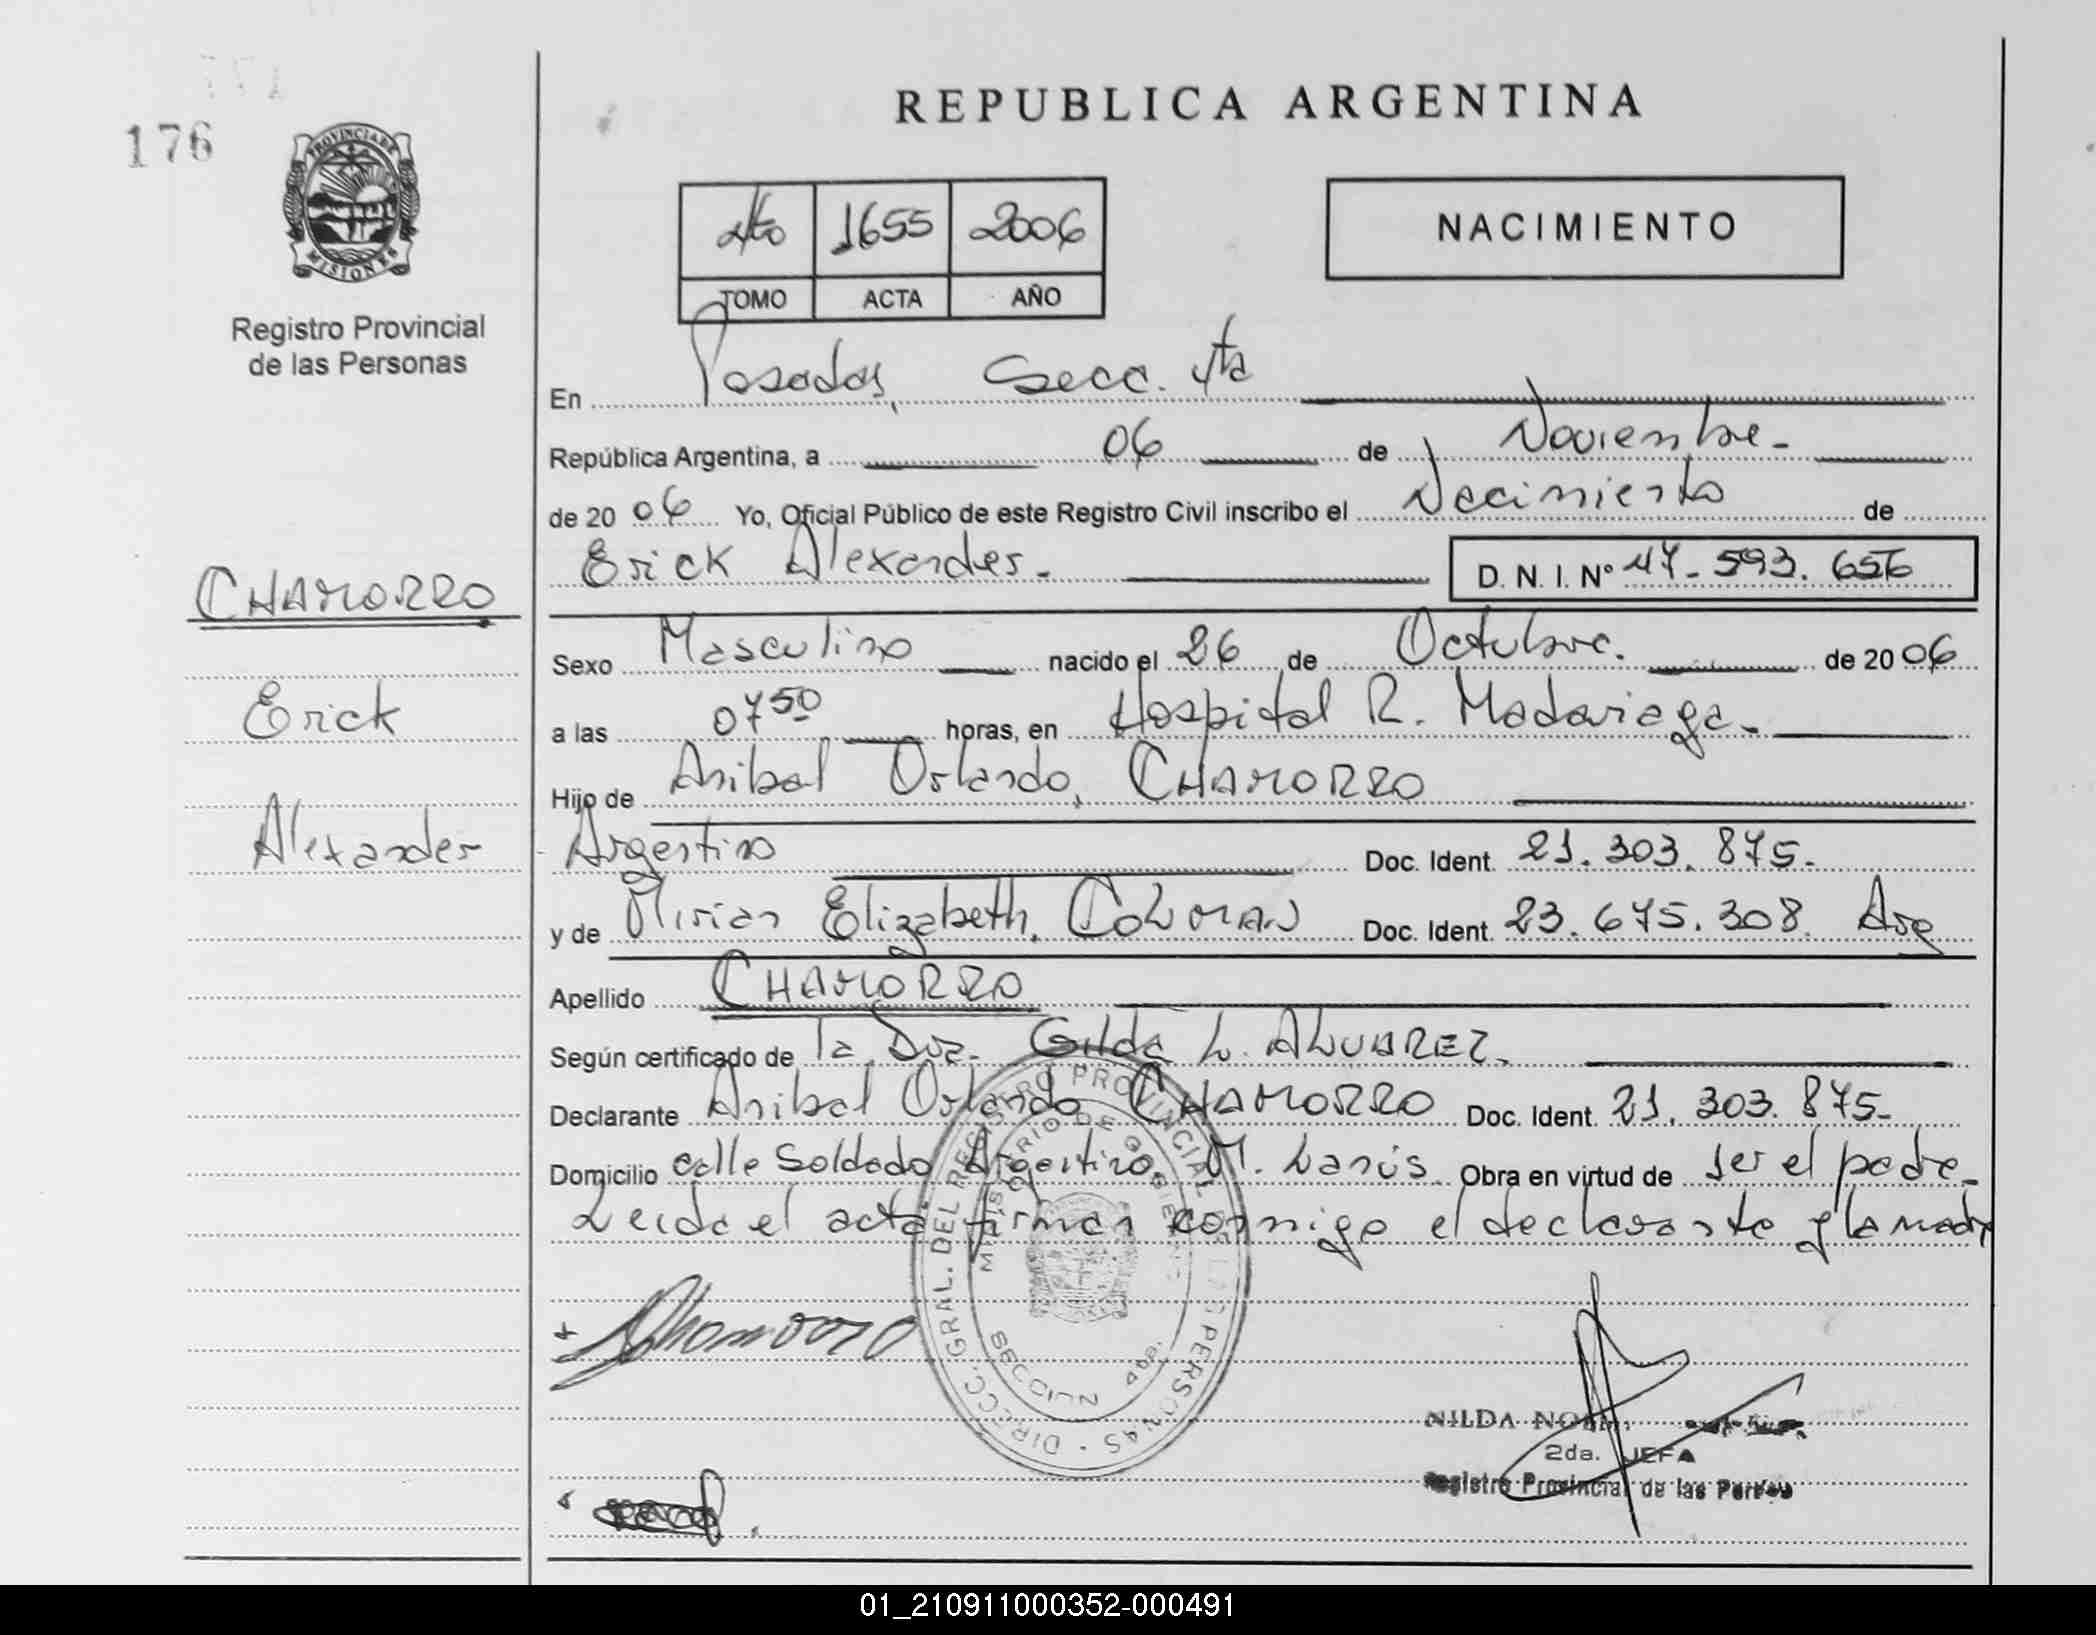 176
PROVINCIA DE
MISIONES
Registro Provincial
de las Personas
REPUBLICA ARGENTINA
4to 1655 2006
TOMO ACTA AÑO
NACIMIENTO
En Posadas, Secc. 4ta
República Argentina, a 06 de Noviembre
de 2006 Yo, Oficial Público de este Registro Civil inscribo el Nacimiento de
Erick Alexander. D. N. I. N° 47.593.656
CHAMORRO
Erick
Alexander
Sexo Masculino nacido el 26 de Octubre. de 2006
a las 07 50 horas, en Hospital R. Madariaga
Hijo de Anibal Orlando, CHAMORRO
Argentino Doc. Ident. 21.303.875.
y de Mirian Elizabeth, COLMAN Doc. Ident. 23.675.308. Arg
Apellido CHAMORRO
Según certificado de la Dra. Gilda L. ALVAREZ.
Declarante Anibal Orlando CHAMORRO Doc. Ident. 21.303.875
Domicilio calle Soldado Argentino M. Lanús. Obra en virtud de ser el padre
Leida el acta firman conmigo el declarante y la madre
DIRECC. GRAL. DEL REGISTRO PROVINCIAL DE LAS PERSONAS
MINISTERIO DE GOBIERNO
SECCION 4ta.
Chamorro
NILDA
2da. JEFA
Registro Provincial de las Personas
01_210911000352-000491